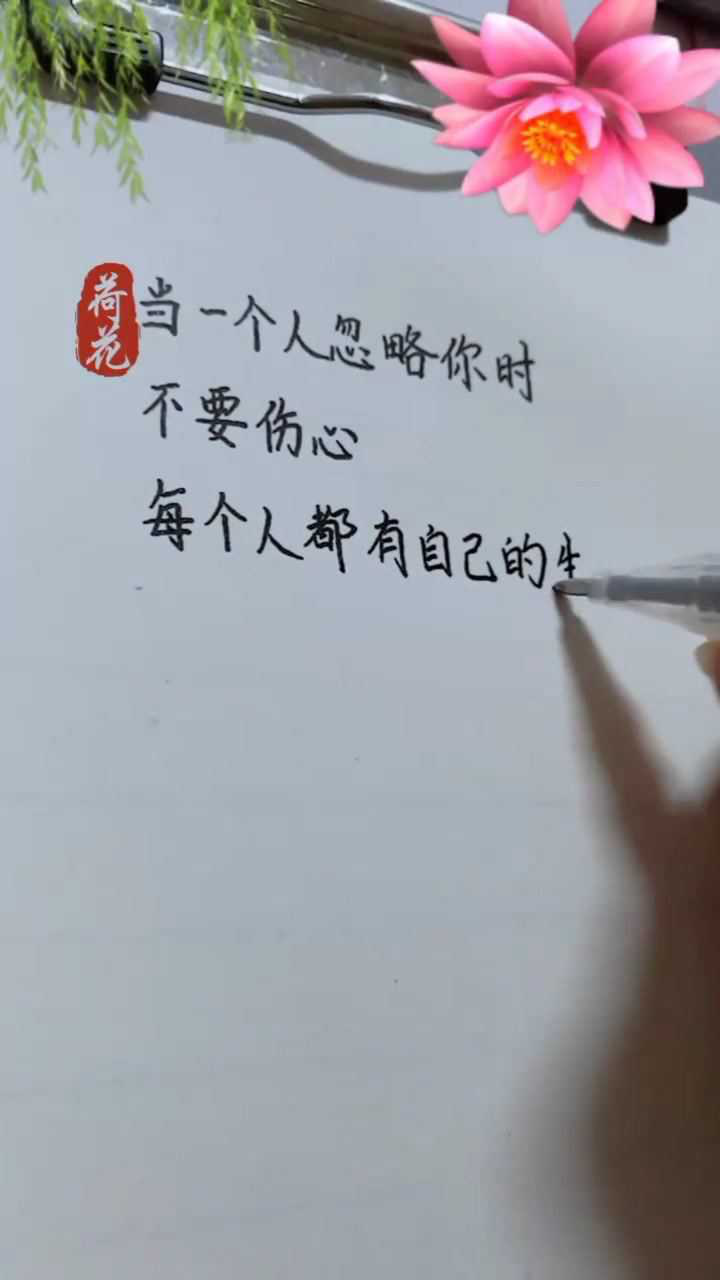 荷花
当一个人忽略你时
不要伤心
每个人都有自己的